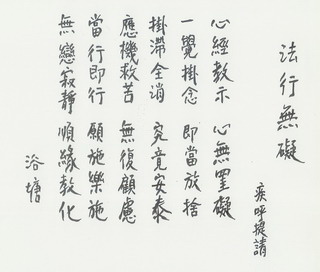 法行無礙
疾呼提請
心經教示　心無罣礙
一覺掛念　即當放捨
掛滯全消　究竟安泰
應機救苦　無復顧慮
當行即行　願施樂施
無戀寂靜　順緣教化
浴塘